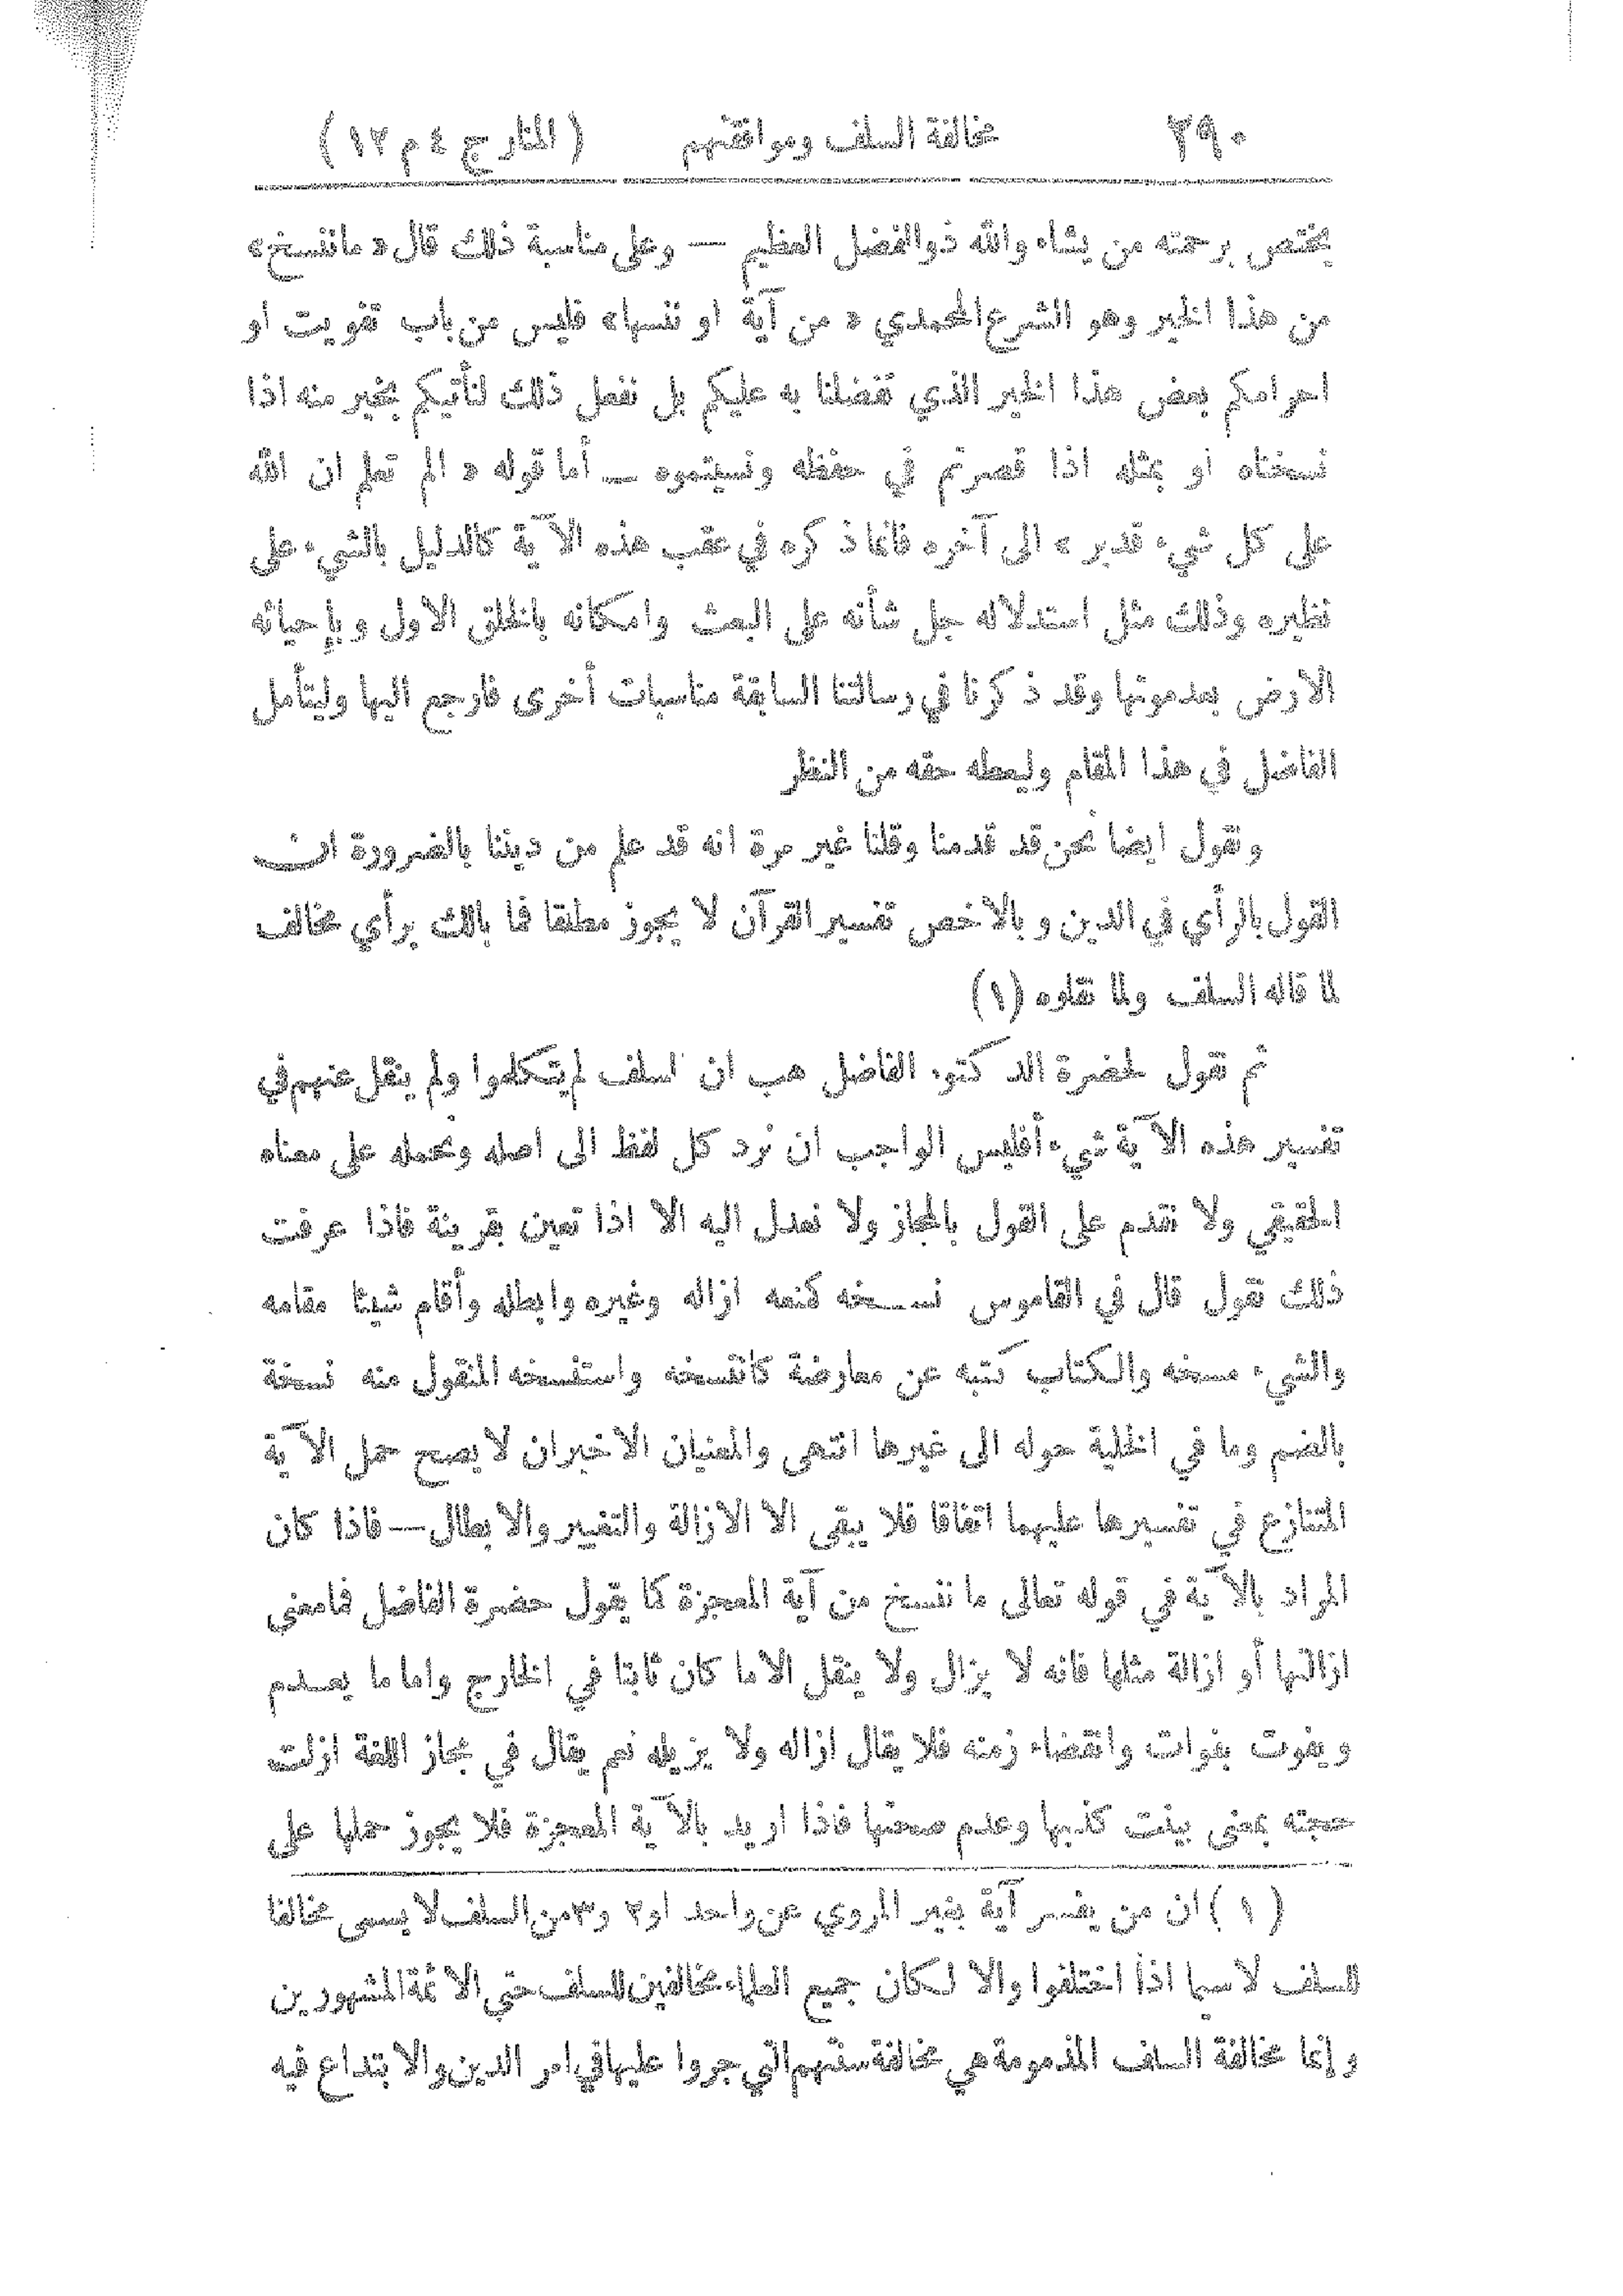 ٢٩٠ مخالفة السلف وموافقتهم ( المنار ج ٤ م ١٢ )
يختص برحمته من يشاء والله ذوالفضل العظيم — وعلى مناسبة ذلك قال « ماننسخ »
من هذا الخير وهو الشرع المحمدي « من آية او ننسها » فليس من باب تفويت او
احرامكم بعض هذا الخير الذي تفضلنا به عليكم بل نفعل ذلك لنأتيكم بخير منه اذا
نسخناه او بمثله اذا قصرتم في حفظه ونسيتموه — أما قوله « الم تعلم ان الله
على كل شيء قدير » الى آخره فانما ذكره في عقب هذه الآية كالدليل بالشيء على
نظيره وذلك مثل استدلاله جل شأنه على البعث وامكانه بالخلق الاول وبإحيائه
الارض بعدموتها وقد ذكرنا في رسالتنا السابقة مناسبات أخرى فارجع اليها وليتأمل
الفاضل في هذا المقام وليعطه حقه من النظر
ونقول ايضا نحن قد قدمنا وقلنا غير مرة انه قد علم من ديننا بالضرورة ان
القول بالرأي في الدين وبالاخص تفسير القرآن لا يجوز مطلقا فما بالك برأي مخالف
لما قاله السلف ولما نقلوه (١)
ثم نقول لحضرة الدكتو. الفاضل هب ان السلف لم يتكلموا ولم ينقل عنهم في
تفسير هذه الآية شيء أفليس الواجب ان نرد كل لفظ الى اصله ونحمله على معناه
الحقيقي ولا نقدم على القول بالمجاز ولا نعدل اليه الا اذا تعين بقرينة فاذا عرفت
ذلك نقول قال في القاموس نسخه كمنعه ازاله وغيره وابطله وأقام شيئا مقامه
والشيء مسخه والكتاب كتبه عن معارضة كانتسخه واستنسخه المنقول منه نسخة
بالضم وما في الخلية حوله الى غيرها انتهى والمعنيان الاخيران لا يصح حمل الآية
المتنازع في تفسيرها عليهما اتفاقا فلا يبقى الا الازالة والتغيير والابطال — فاذا كان
المراد بالآية في قوله تعالى ما ننسخ من آية المعجزة كما يقول حضرة الفاضل فما معنى
ازالتها أو ازالة مثلها فانه لا يزال ولا ينقل الا ما كان ثابتا في الخارج واما ما يعدم
ويفوت بفوات وانقضاء زمنه فلا يقال ازاله ولا يزيله نعم يقال في مجاز اللغة ازلت
حجته بمعنى بينت كذبها وعدم صحتها فاذا اريد بالآية المعجزة فلا يجوز حملها على
( ١ ) ان من يفسر آية بغير المروي عن واحد او٢ و٣ من السلف لا يسمى مخالفا
للسلف لا سيما اذا اختلفوا والا لكان جميع العلماء مخالفين للسلف حتى الائمة المشهورين
وإنما مخالفة السلف المذمومة هي مخالفة سنتهم التي جروا عليها في امر الدين والابتداع فيه